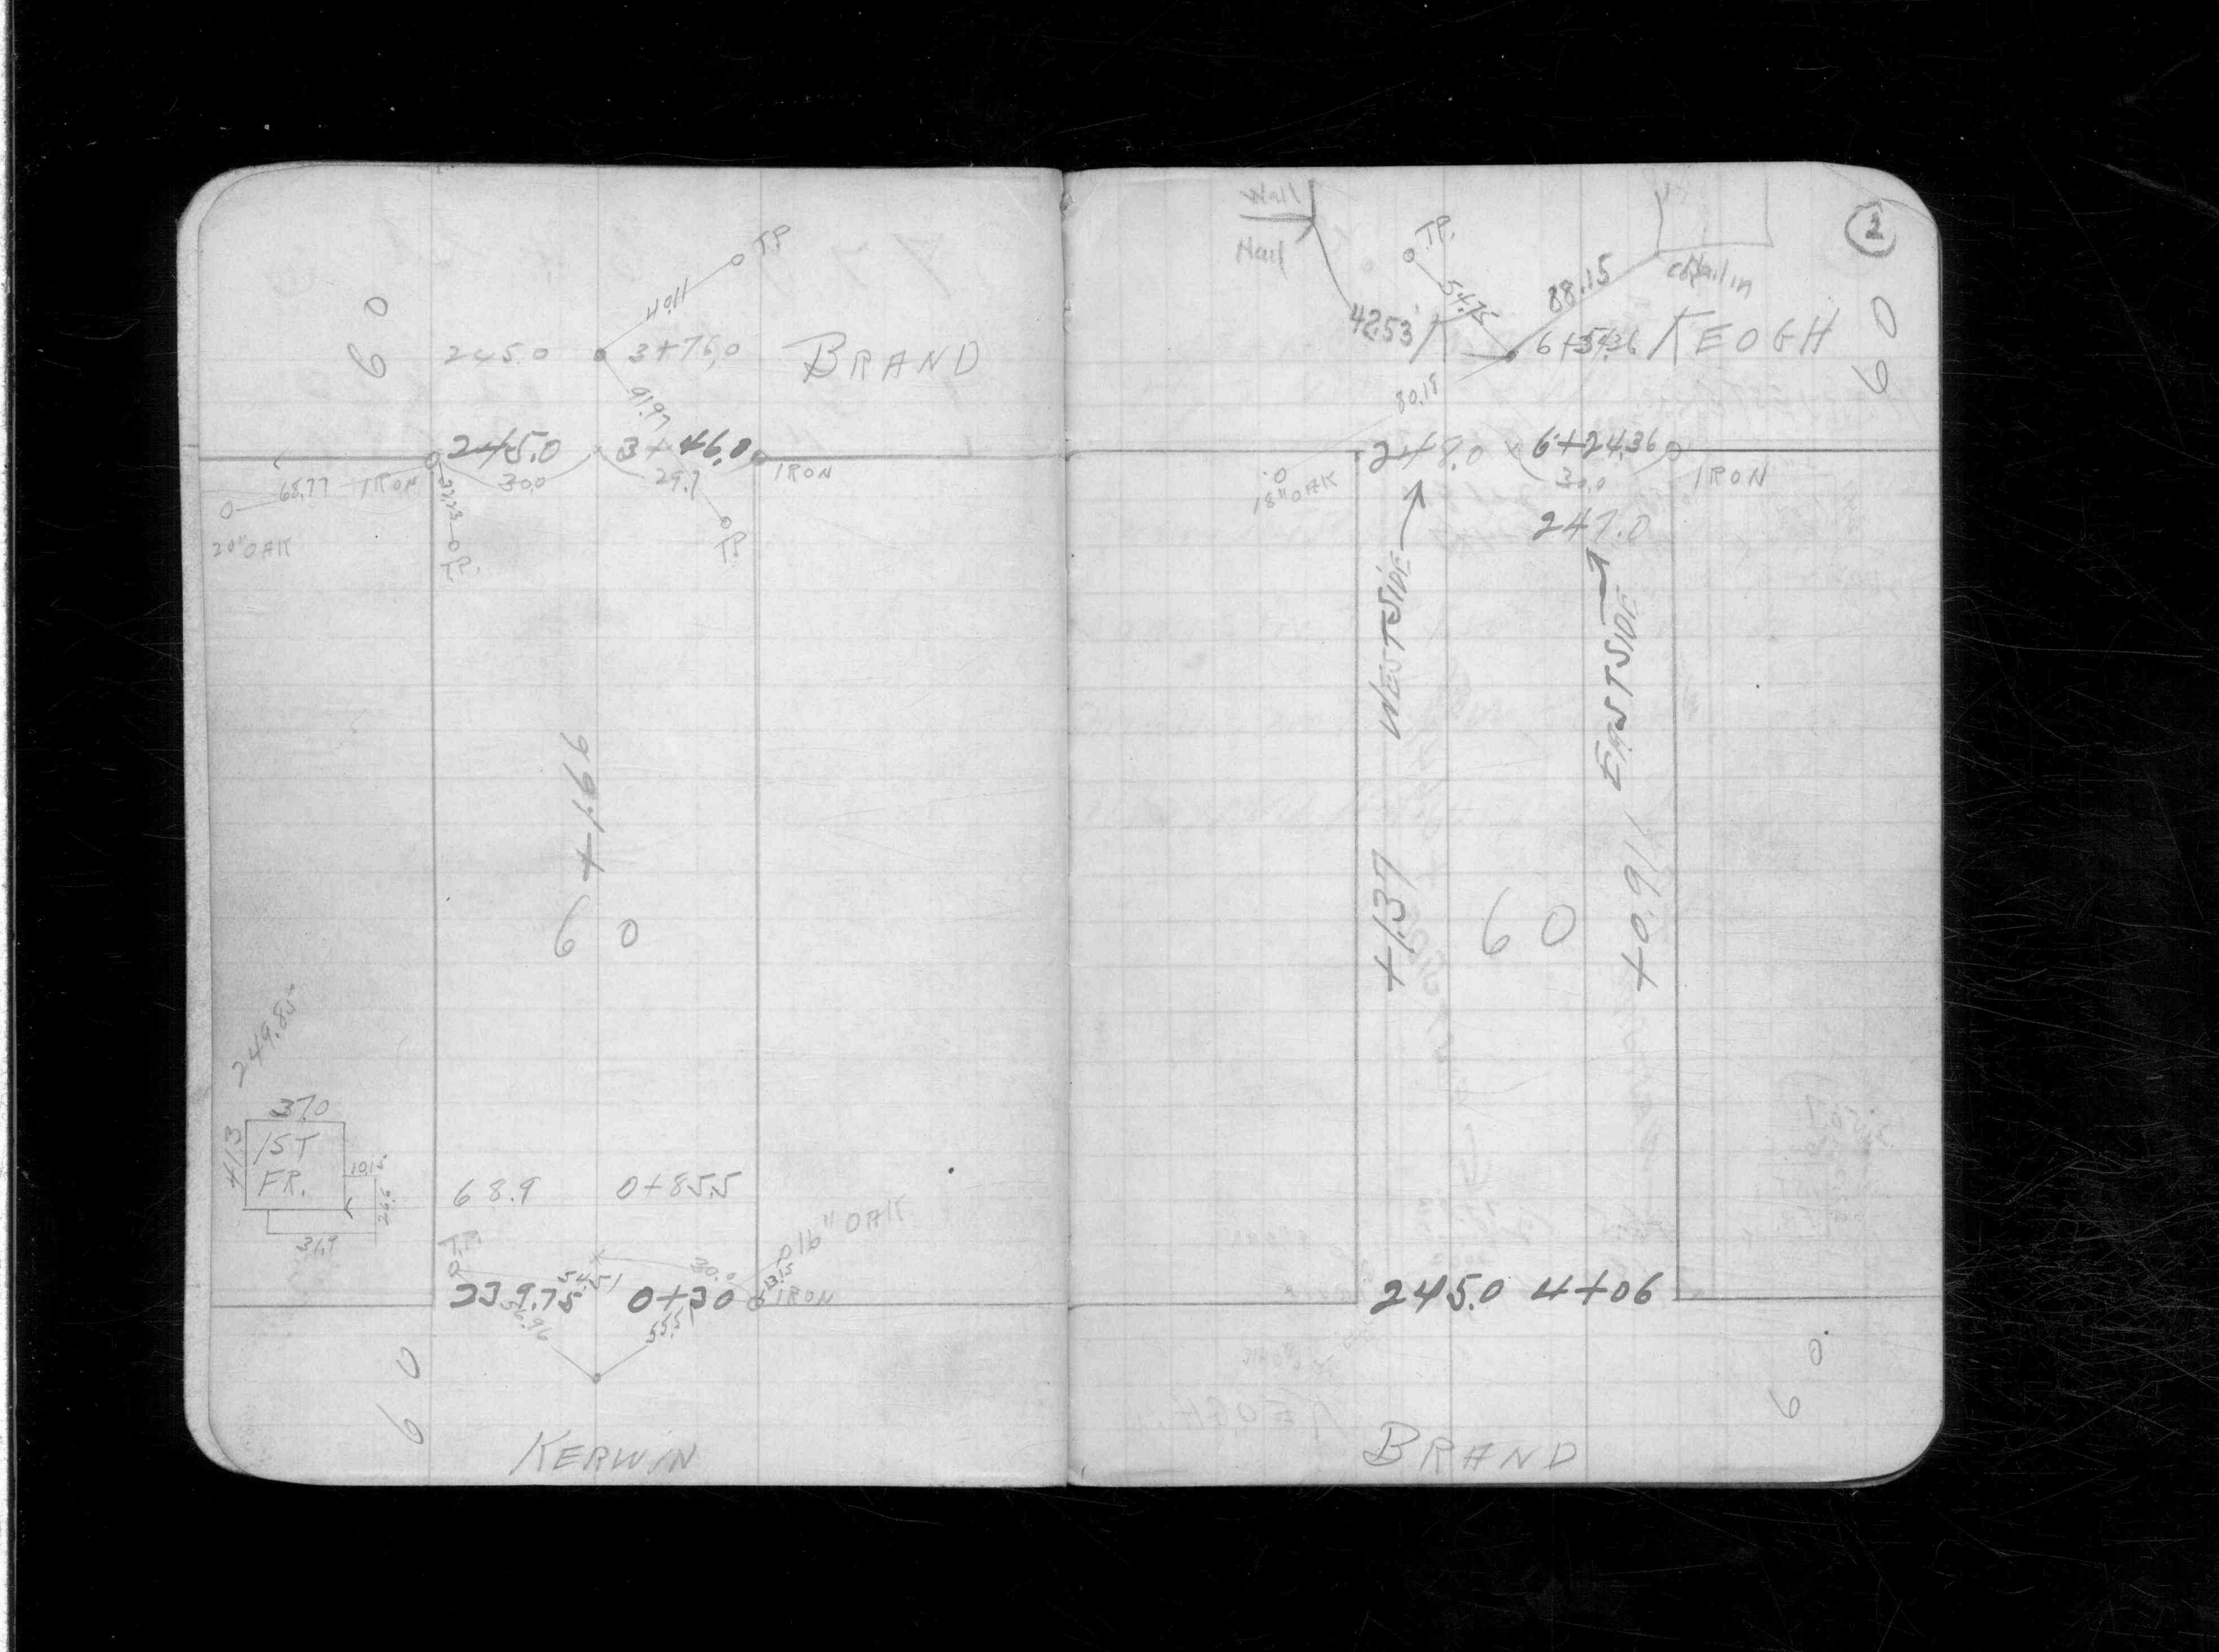 T.P.
40.11
60
245.0 3+76.0 BRAND
91.97
245.0 3+46.0
68.77 IRON 30.0 29.7 IRON
32.23
20" OAK T.P. T.P.
+1.66
60
249.85
37.0
41.3 1ST
FR.
10.15
26.6
31.9
68.9 0+85.5
T.P.
16" OAK
54.51 30.0 13.15
239.75 0+30 IRON
56.96 55.51
60
KERWIN
2
Wall
Nail
T.P.
54.75 88.15 Nail in
42.53' 6+54.36 KEOGH
60
80.19
248.0 6+24.36
18" OAK 30.0 IRON
247.0
+1.37 WESTSIDE
+0.911 EASTSIDE
60
245.0 4+06
60
BRAND